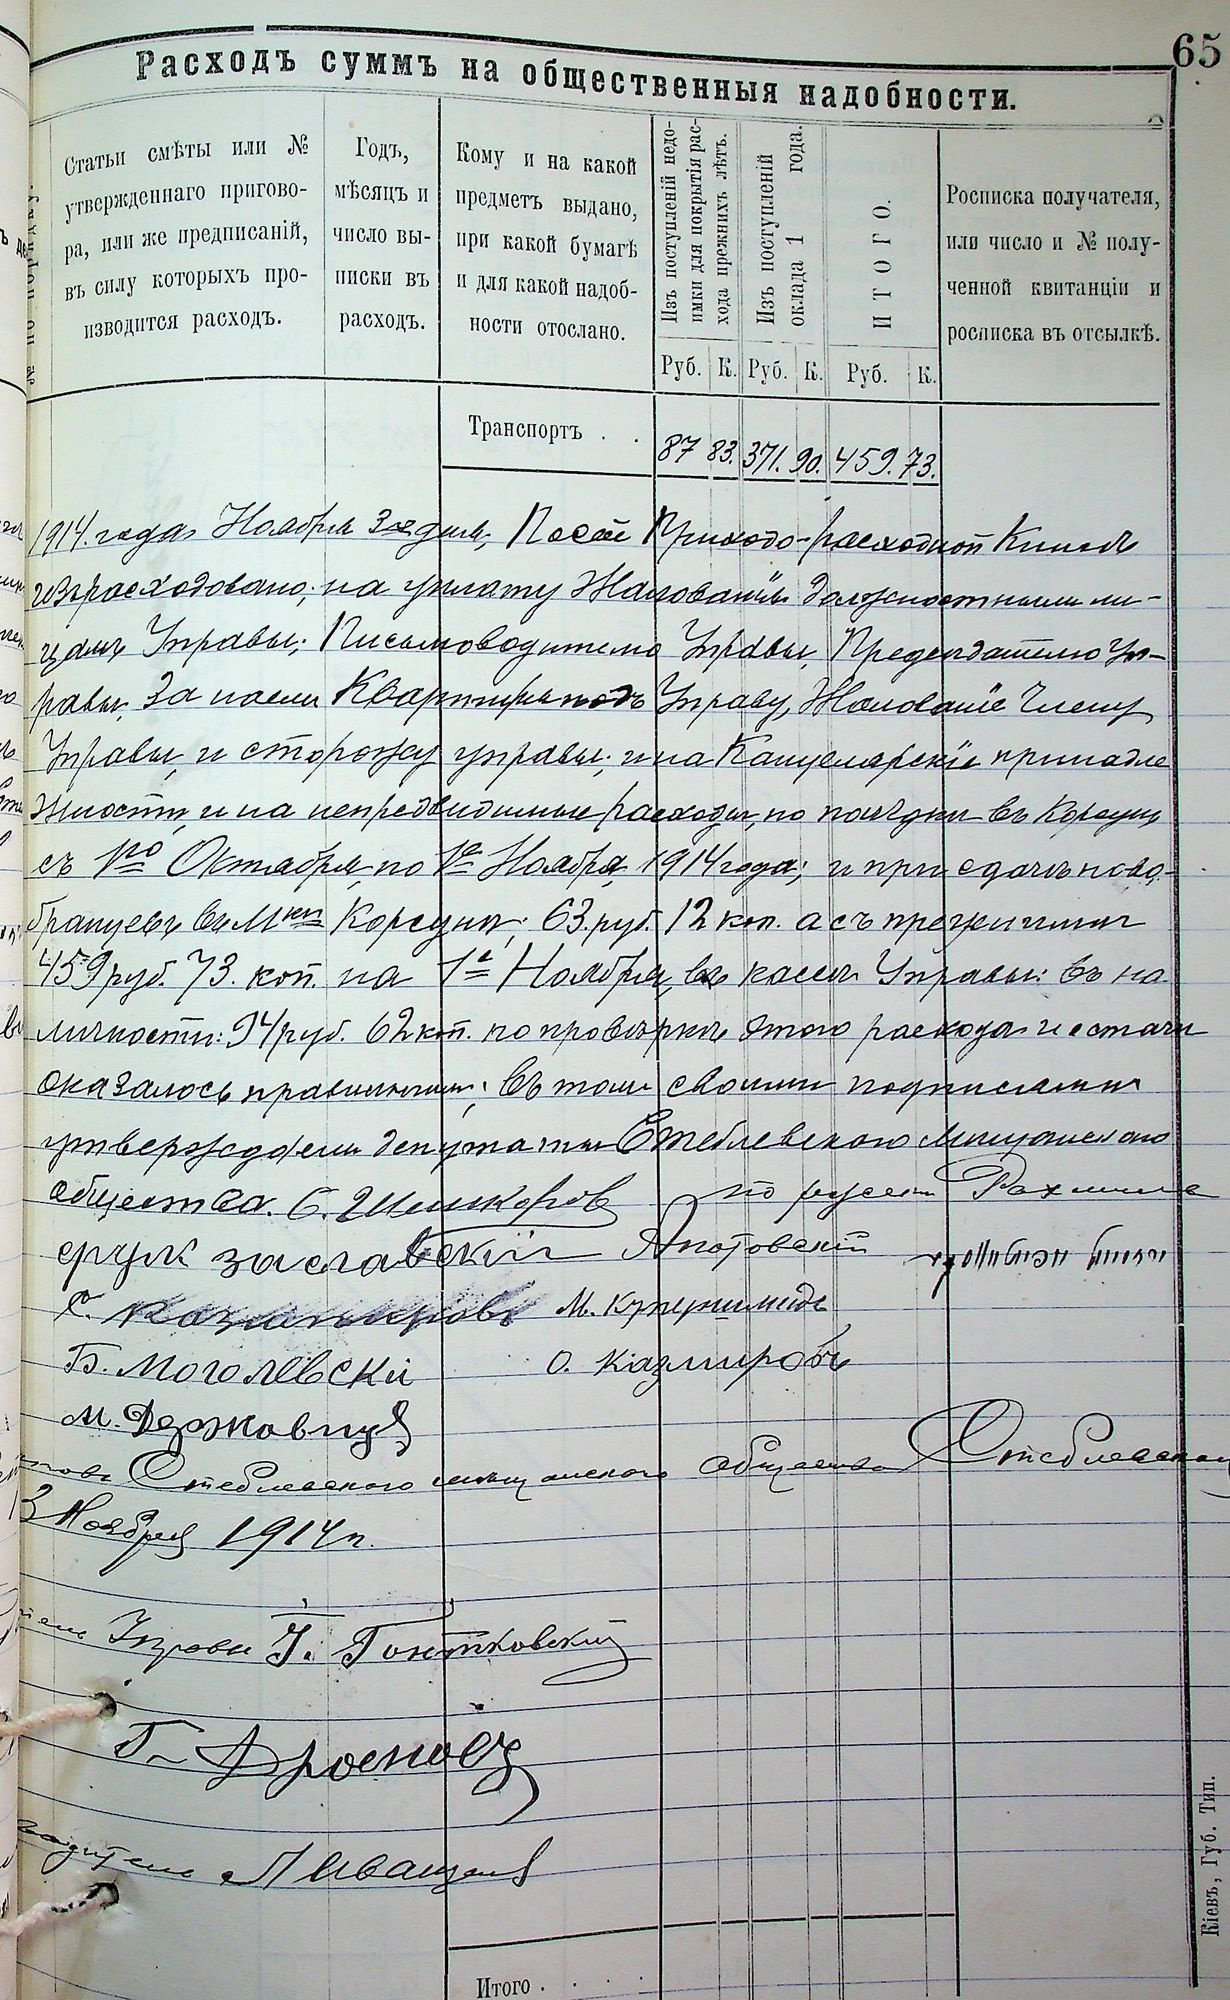 65
Расходъ суммъ на общественныя надобности.
Статьи смѣты или №
утвержденнаго пригово-
ра, или же предписаній,
въ силу которыхъ про-
изводится расходъ.
Годъ,
мѣсяцъ и
число вы-
писки въ
расходъ.
Кому и на какой
предметъ выдано,
при какой бумагѣ
и для какой надоб-
ности отослано.
Изъ поступленій недо-
имки для покрытія рас-
хода прежнихъ лѣтъ.
Изъ поступленій
оклада 1 года.
ИТОГО.
Росписка получателя,
или число и № полу-
ченной квитанціи и
росписка въ отсылкѣ.
Руб. К. Руб. К. Руб. К.
Транспортъ . . 87 83. 371. 90. 459. 73.
1914. года Ноября 3го дня, По сей Приходо-расходной Книгѣ
израсходовано; на уплату Жалованія должностнымъ ли-
цамъ Управы; Письмоводителю Управы, Председателю Уп-
равы, За наемъ Квартиры подъ Управу, Жалованіе Члену
Управы, и сторожу управы; и на Канцелярскіе принадле
жности, и на непредвидимые расходы, по поѣздки въ Корсунь
съ 1го Октября, по 1е Ноября, 1914 года; и при сдачѣ ново-
бранцевъ въ Мкѣ Корсунѣ; 63. руб. 12 коп. а съ прежними
459 руб. 73. коп. на 1е Ноября, въ кассѣ Управы: въ на
личности: 94 руб. 62 коп. по провѣркѣ этого расхода и остачи
оказалось правильнымъ; въ томъ своими подписями
утверждаемъ депутаты Стеблевского мѣщанского
общества. С. Шликоров по русски Рахмиль
срулъ заславскій
М. Купершмидъ
Б. Моголевскі О. Казмировъ
М. Держовицъ
Стеблевского мѣщанского общества
3 Ноября 1914 г.
Управы
Кіевъ, Губ. Тип.
Итого . . . .